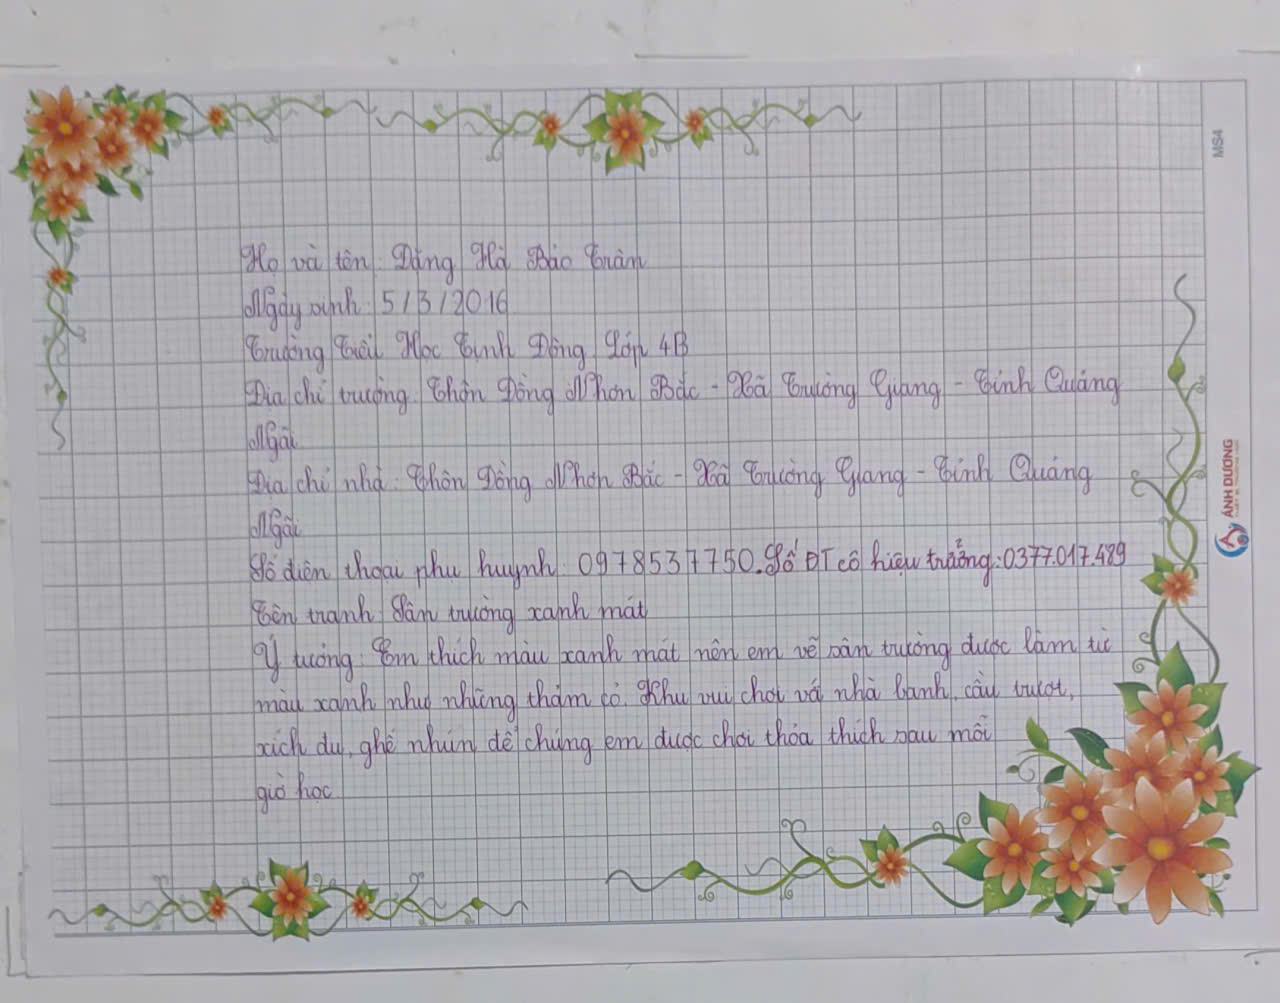 Họ và tên: Đặng Hà Bảo Trâm
Ngày sinh: 5/3/2016
Trường Tiểu Học Tịnh Đông. Lớp 4B
Địa chỉ trường: Thôn Đông Nhơn Bắc - Xã Trường Giang - Tỉnh Quảng
Ngãi
Địa chỉ nhà: Thôn Đông Nhơn Bắc - Xã Trường Giang - Tỉnh Quảng
Ngãi
Số điện thoại phụ huynh: 0978537750. Số ĐT cô hiệu trưởng: 0377.017.489
Tên tranh: Sân trường xanh mát
Ý tưởng: Em thích màu xanh mát nên em vẽ sân trường được làm từ
màu xanh như những thảm cỏ. Khu vui chơi và nhà banh, cầu trượt,
xích đu, ghế nhún để chúng em được chơi thỏa thích sau mỗi
giờ học
MS4
ÁNH DƯƠNG